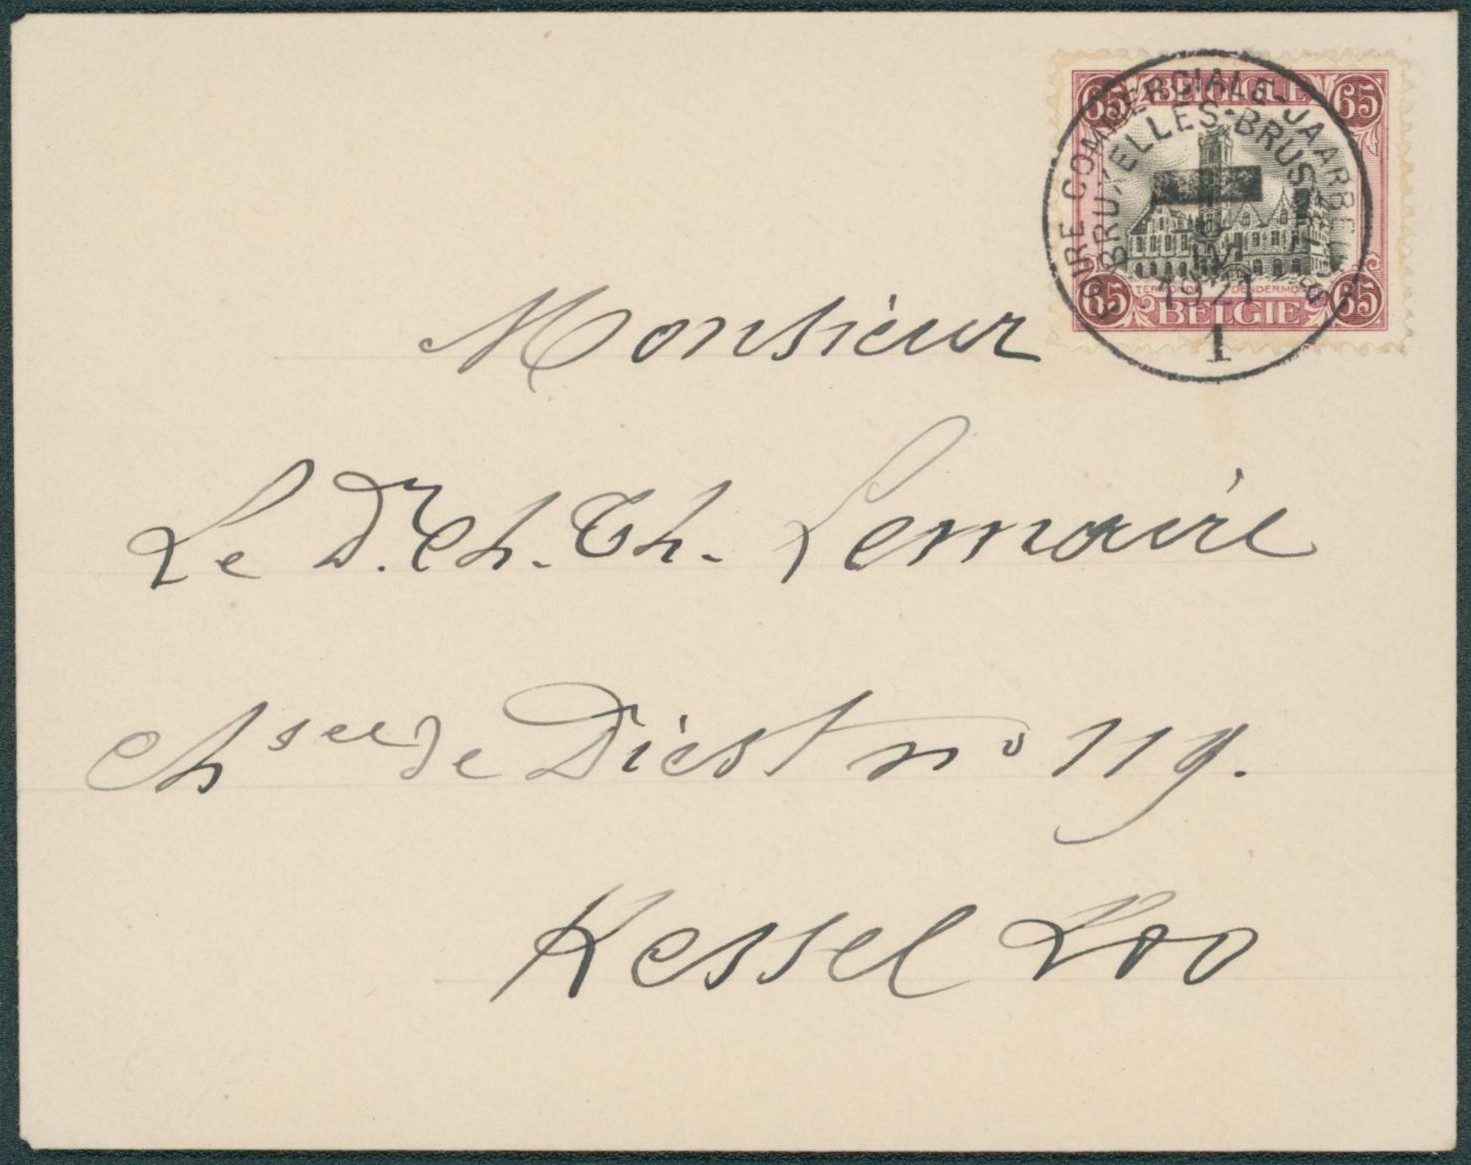 65 BELGIQUE 65
FOIRE COMMERCIALE - JAARBEURS
BRUXELLES - BRUSSEL
IV
1921
TERMONDE DENDERMONDE
65 BELGIE 65
1
Monsieur
Le Dr. Ch. Th. Lemaire
Chsée de Diest no 119.
Kessel Loo